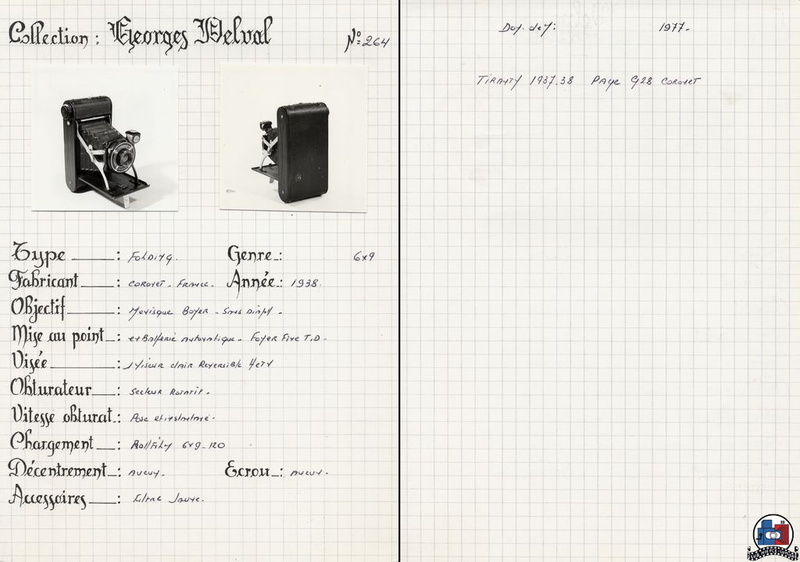 Collection : Georges Delval N° 264
Type : Folding. Genre : 6x9
Fabricant : Coronet - France. Année : 1938.
Objectif : Menisque Boyer - Sans
Mise au point : Automatique - Foyer Fixe T.D.
Visée : Viseur clair Reversible
Obturateur : Secteur Rotatif.
Vitesse obturat. : Pose et instantané.
Chargement : Rollfilm 6x9 - 120
Décentrement : aucun. Ecrou : aucun.
Accessoires : Filtre Jaune.
1977.
Tiranty 1937.38 Page Coronet